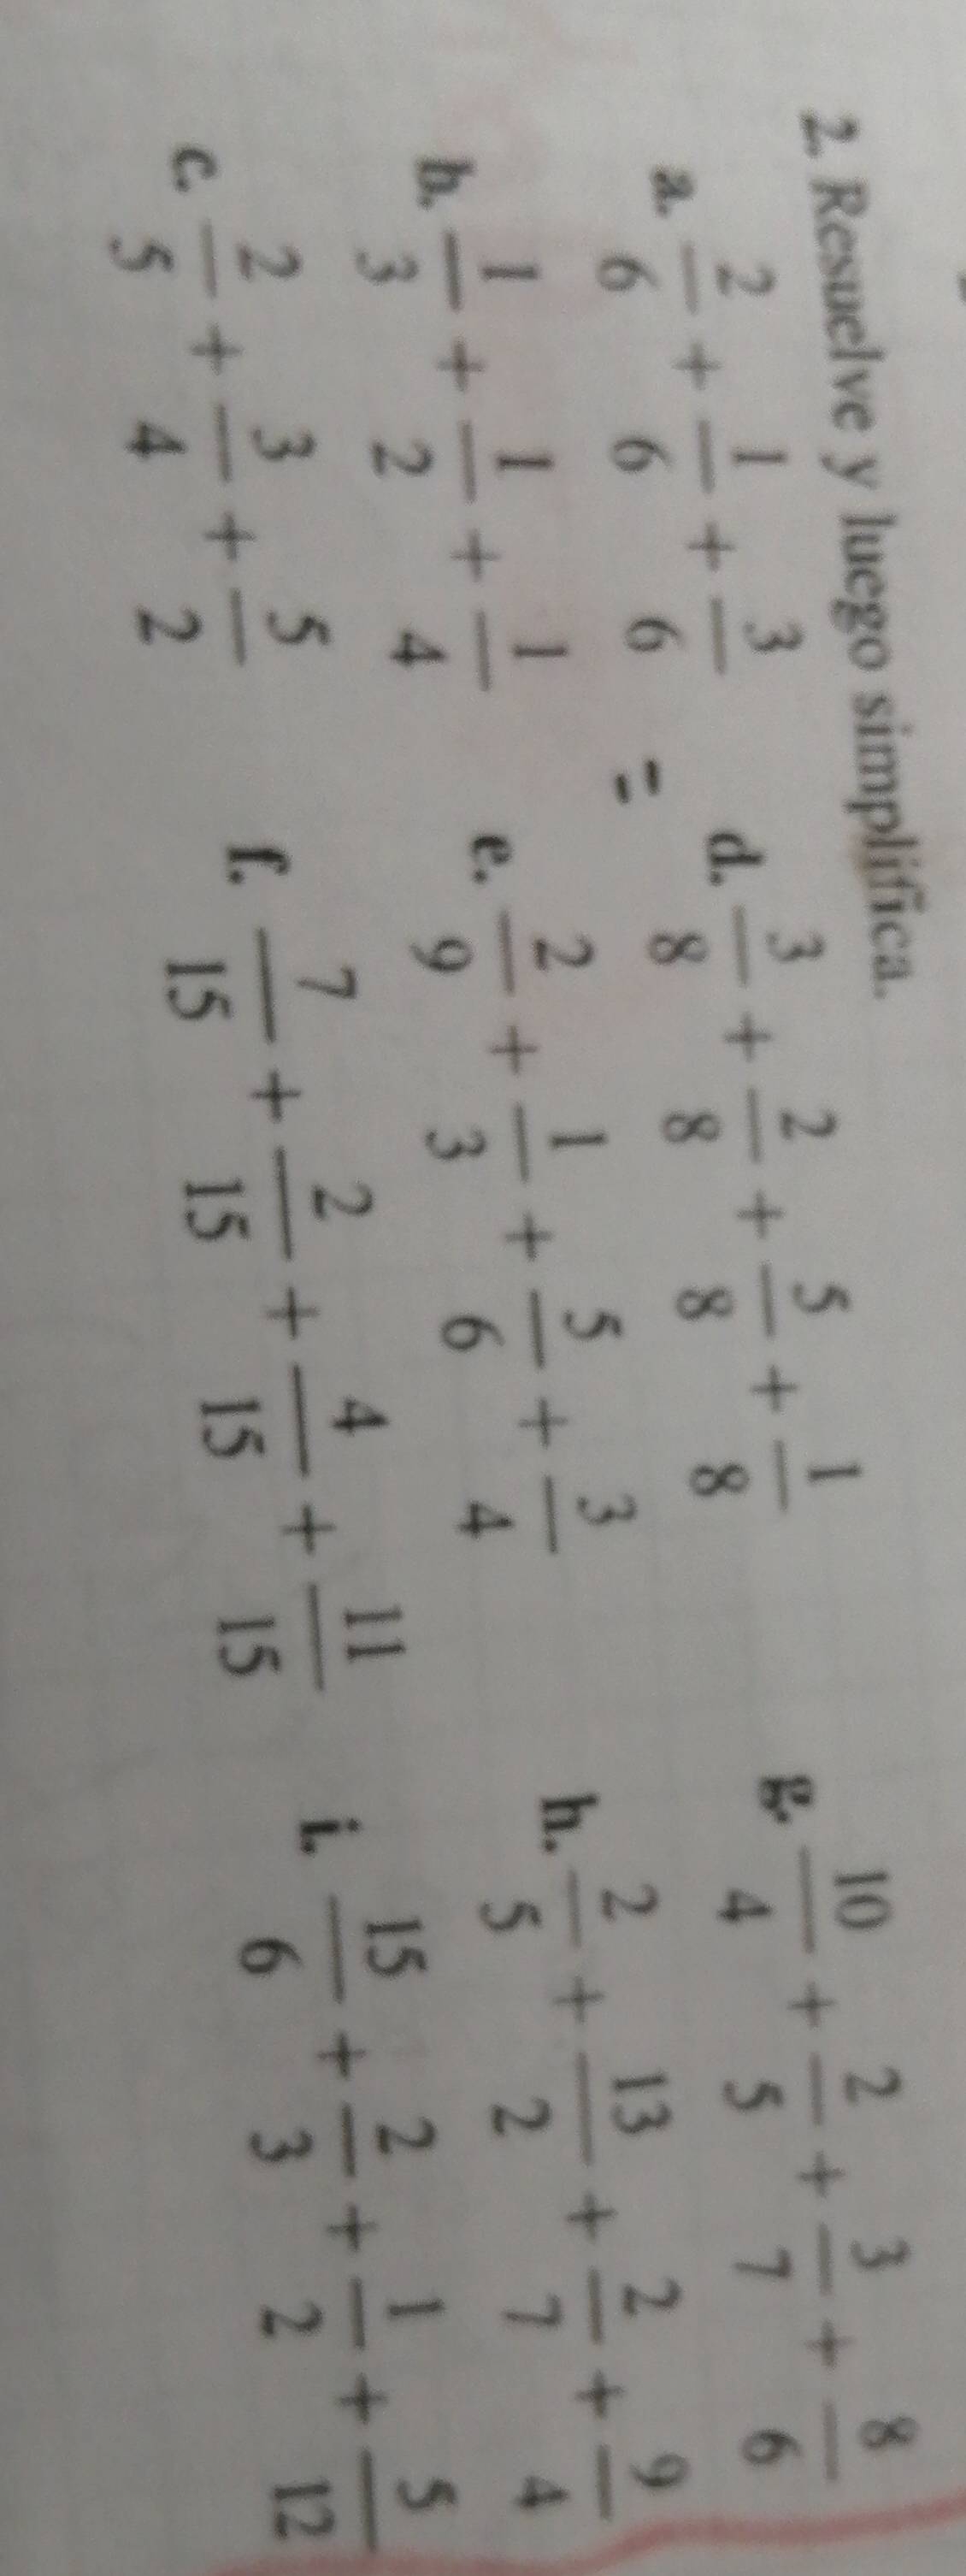 2. Resuelve y luego simplifica.
a. 2/6 + 1/6 + 3/6 =
b. 1/3 + 1/2 + 1/4
c. 2/5 + 3/4 + 5/2
d. 3/8 + 2/8 + 5/8 + 1/8
e. 2/9 + 1/3 + 5/6 + 3/4
f. 7/15 + 2/15 + 4/15 + 11/15
g. 10/4 + 2/5 + 3/7 + 8/6
h. 2/5 + 13/2 + 2/7 + 9/4
i. 15/6 + 2/3 + 1/2 + 5/12